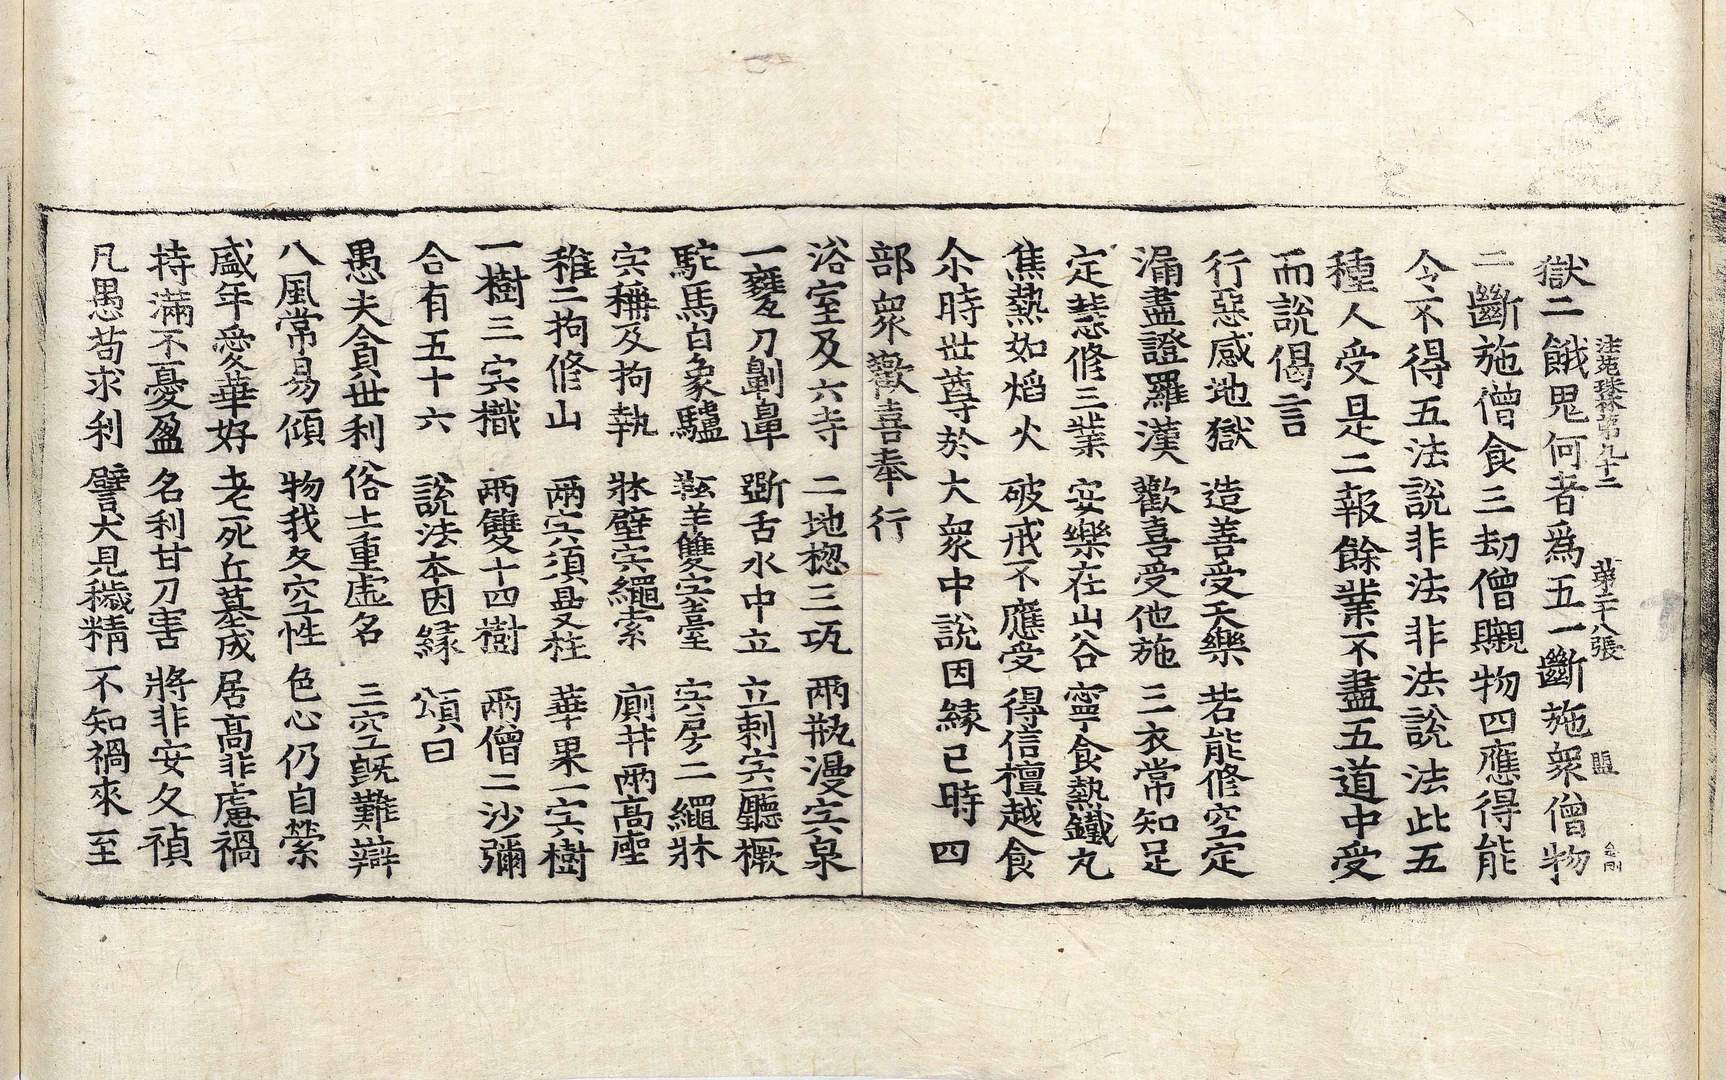 法苑珠林第九十二 第三十八張 盟 金剛
獄二餓鬼何者爲五一斷施衆僧物
二斷施僧食三劫僧嚫物四應得能
令不得五法說非法非法說法此五
種人受是二報餘業不盡五道中受
而說偈言
行惡感地獄 造善受天樂 若能修空定
漏盡證羅漢 歡喜受他施 三衣常知足
定慧修三業 安樂在山谷 寧食熱鐵丸
焦熱如焰火 破戒不應受 得信檀越食
尒時世尊於大衆中說因緣已時四
部衆歡喜奉行
浴室及六寺 二地楤三瓨 兩瓨漫宍泉
一甕刀劓鼻 斷舌水中立 立刺宍廳橛
駝馬白象驢 羝羊雙宍臺 宍房二繩牀
宍稱及拘執 牀壁宍繩索 廁井兩高座
稚二拘修山 兩宍須曼柱 華果一宍樹
一樹三宍檥 兩雙十四樹 兩僧二沙彌
合有五十六 說法本因緣 頌曰
愚夫貪世利 俗士重虛名 三空旣難辯
八風常易傾 物我久空性 色心仍自縈
盛年愛華好 老死丘墓成 居高非慮禍
持滿不憂盈 名利甘刀害 將非安久禎
凡愚苟求利 譬犬見穢精 不知禍來至